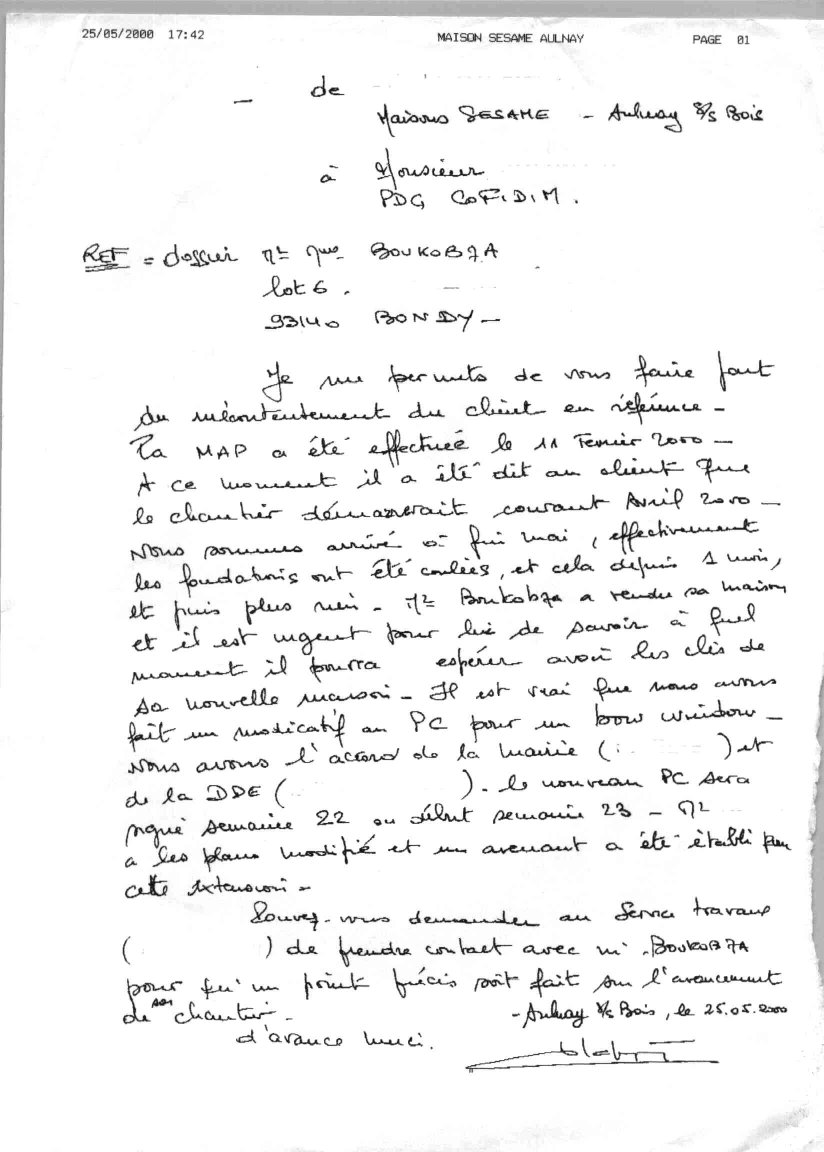 25/05/2000 17:42 MAISON SESAME AULNAY PAGE 01
- de
Maisons SESAME - Aulnay S/S Bois
à Monsieur
PDG COFIDIM.
REF = dossier Mr Mme BOUKOBZA
lot 6.
93140 BONDY -
Je me permets de vous faire part
du mécontentement du client en référence -
La MAP a été effectuée le 11 Fevrier 2000 -
A ce moment il a été dit au client que
le chantier démarrerait courant Avril 2000 -
Nous sommes arrivé à fin mai, effectivement
les fondations ont été coulées, et cela depuis 1 mois,
et puis plus rien - Mr Boukobza a vendu sa maison
et il est urgent pour lui de savoir à quel
moment il pourra espérer avoir les clés de
sa nouvelle maison - Il est vrai que nous avons
fait un modicatif au PC pour un bow window -
Nous avons l'accord de la mairie ( ) et
de la DDE ( ). le nouveau PC sera
signé semaine 22 ou début semaine 23 - Mr
a les plans modifié et un avenant a été établi pour
cette extension -
Pouvez-vous demander au Service travaux
( ) de prendre contact avec M. BOUKOBZA
pour qu'un point précis soit fait sur l'avancement
de son chantier -
- Aulnay S/S Bois, le 25.05.2000
d'avance merci.